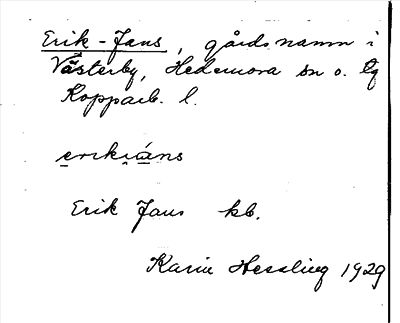 Erik-Jans, gårdsnamn i
Västerby, Hedemora sn o. lg
Kopparb. l.
erikjáns
Erik Jans kb.
Karin Hessling 1929